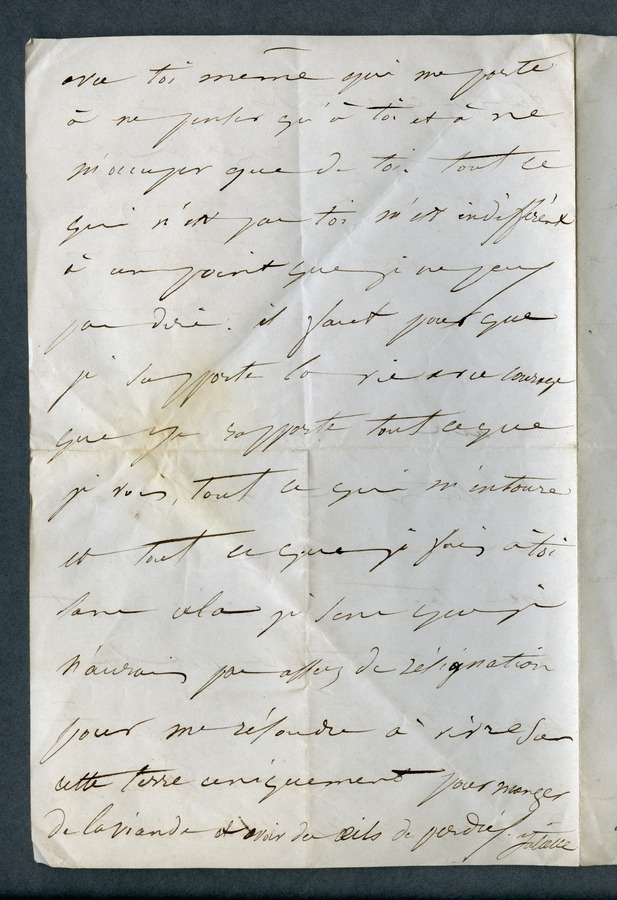 avec toi même qui me porte
à ne penser qu'à toi et à ne
m'occuper que de toi. tout ce
qui n'est pas toi m'est indifférent
à un point que je ne peux
pas dire. il faut pour que
je supporte la vie avec courage
que je rapporte tout ce que
je vois, tout ce qui m'entoure
et tout ce que je fais à toi
sans cela je sens que je
n'aurais pas assez de résignation
pour me résoudre à vivre sur
cette terre uniquement pour manger
de la viande et avoir des œils de perdrix.